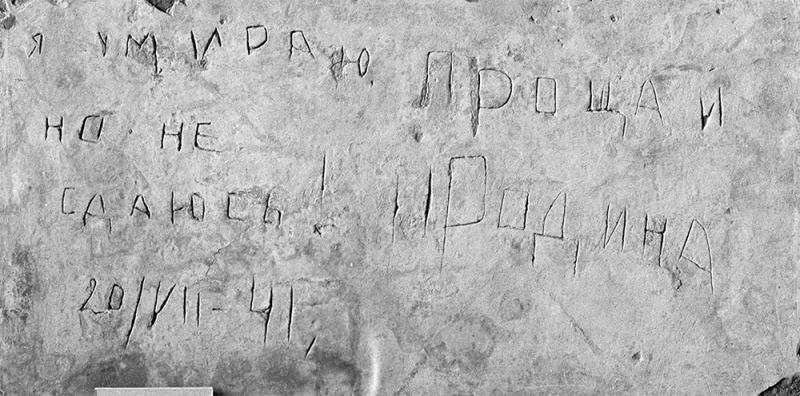 я умираю,
но не
сдаюсь!
20/VII-41,
Прощай
Родина